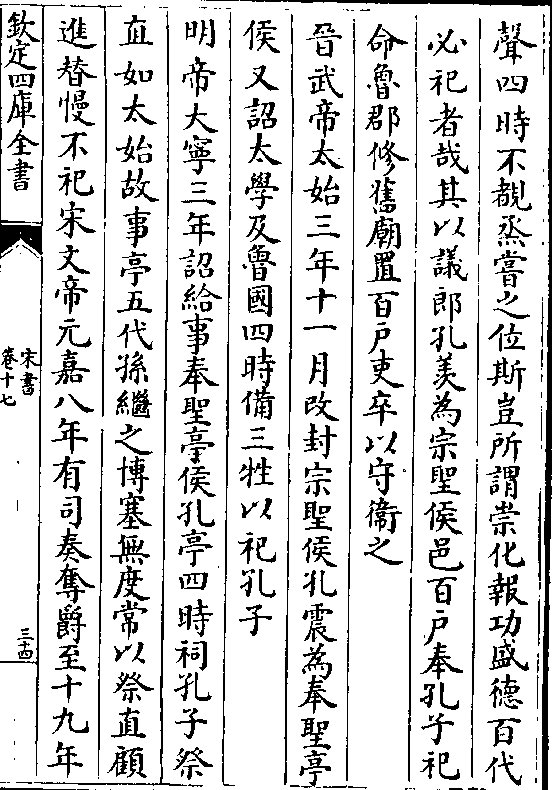 聲四時不覩烝嘗之位斯豈所謂崇化報功盛德百代
必祀者哉其以議郎孔羡為宗聖侯邑百戶奉孔子祀
命魯郡修舊廟置百戶吏卒以守衞之
晉武帝太始三年十一月改封宗聖侯孔震為奉聖亭
侯又詔太學及魯國四時備三牲以祀孔子
明帝大寧三年詔給事奉聖亭侯孔亭四時祠孔子祭
直如太始故事亭五代孫繼之博塞無度常以祭直顧
進替慢不祀宋文帝元嘉八年有司奏奪爵至十九年
欽定四庫全書
宋書
卷十七
三十四